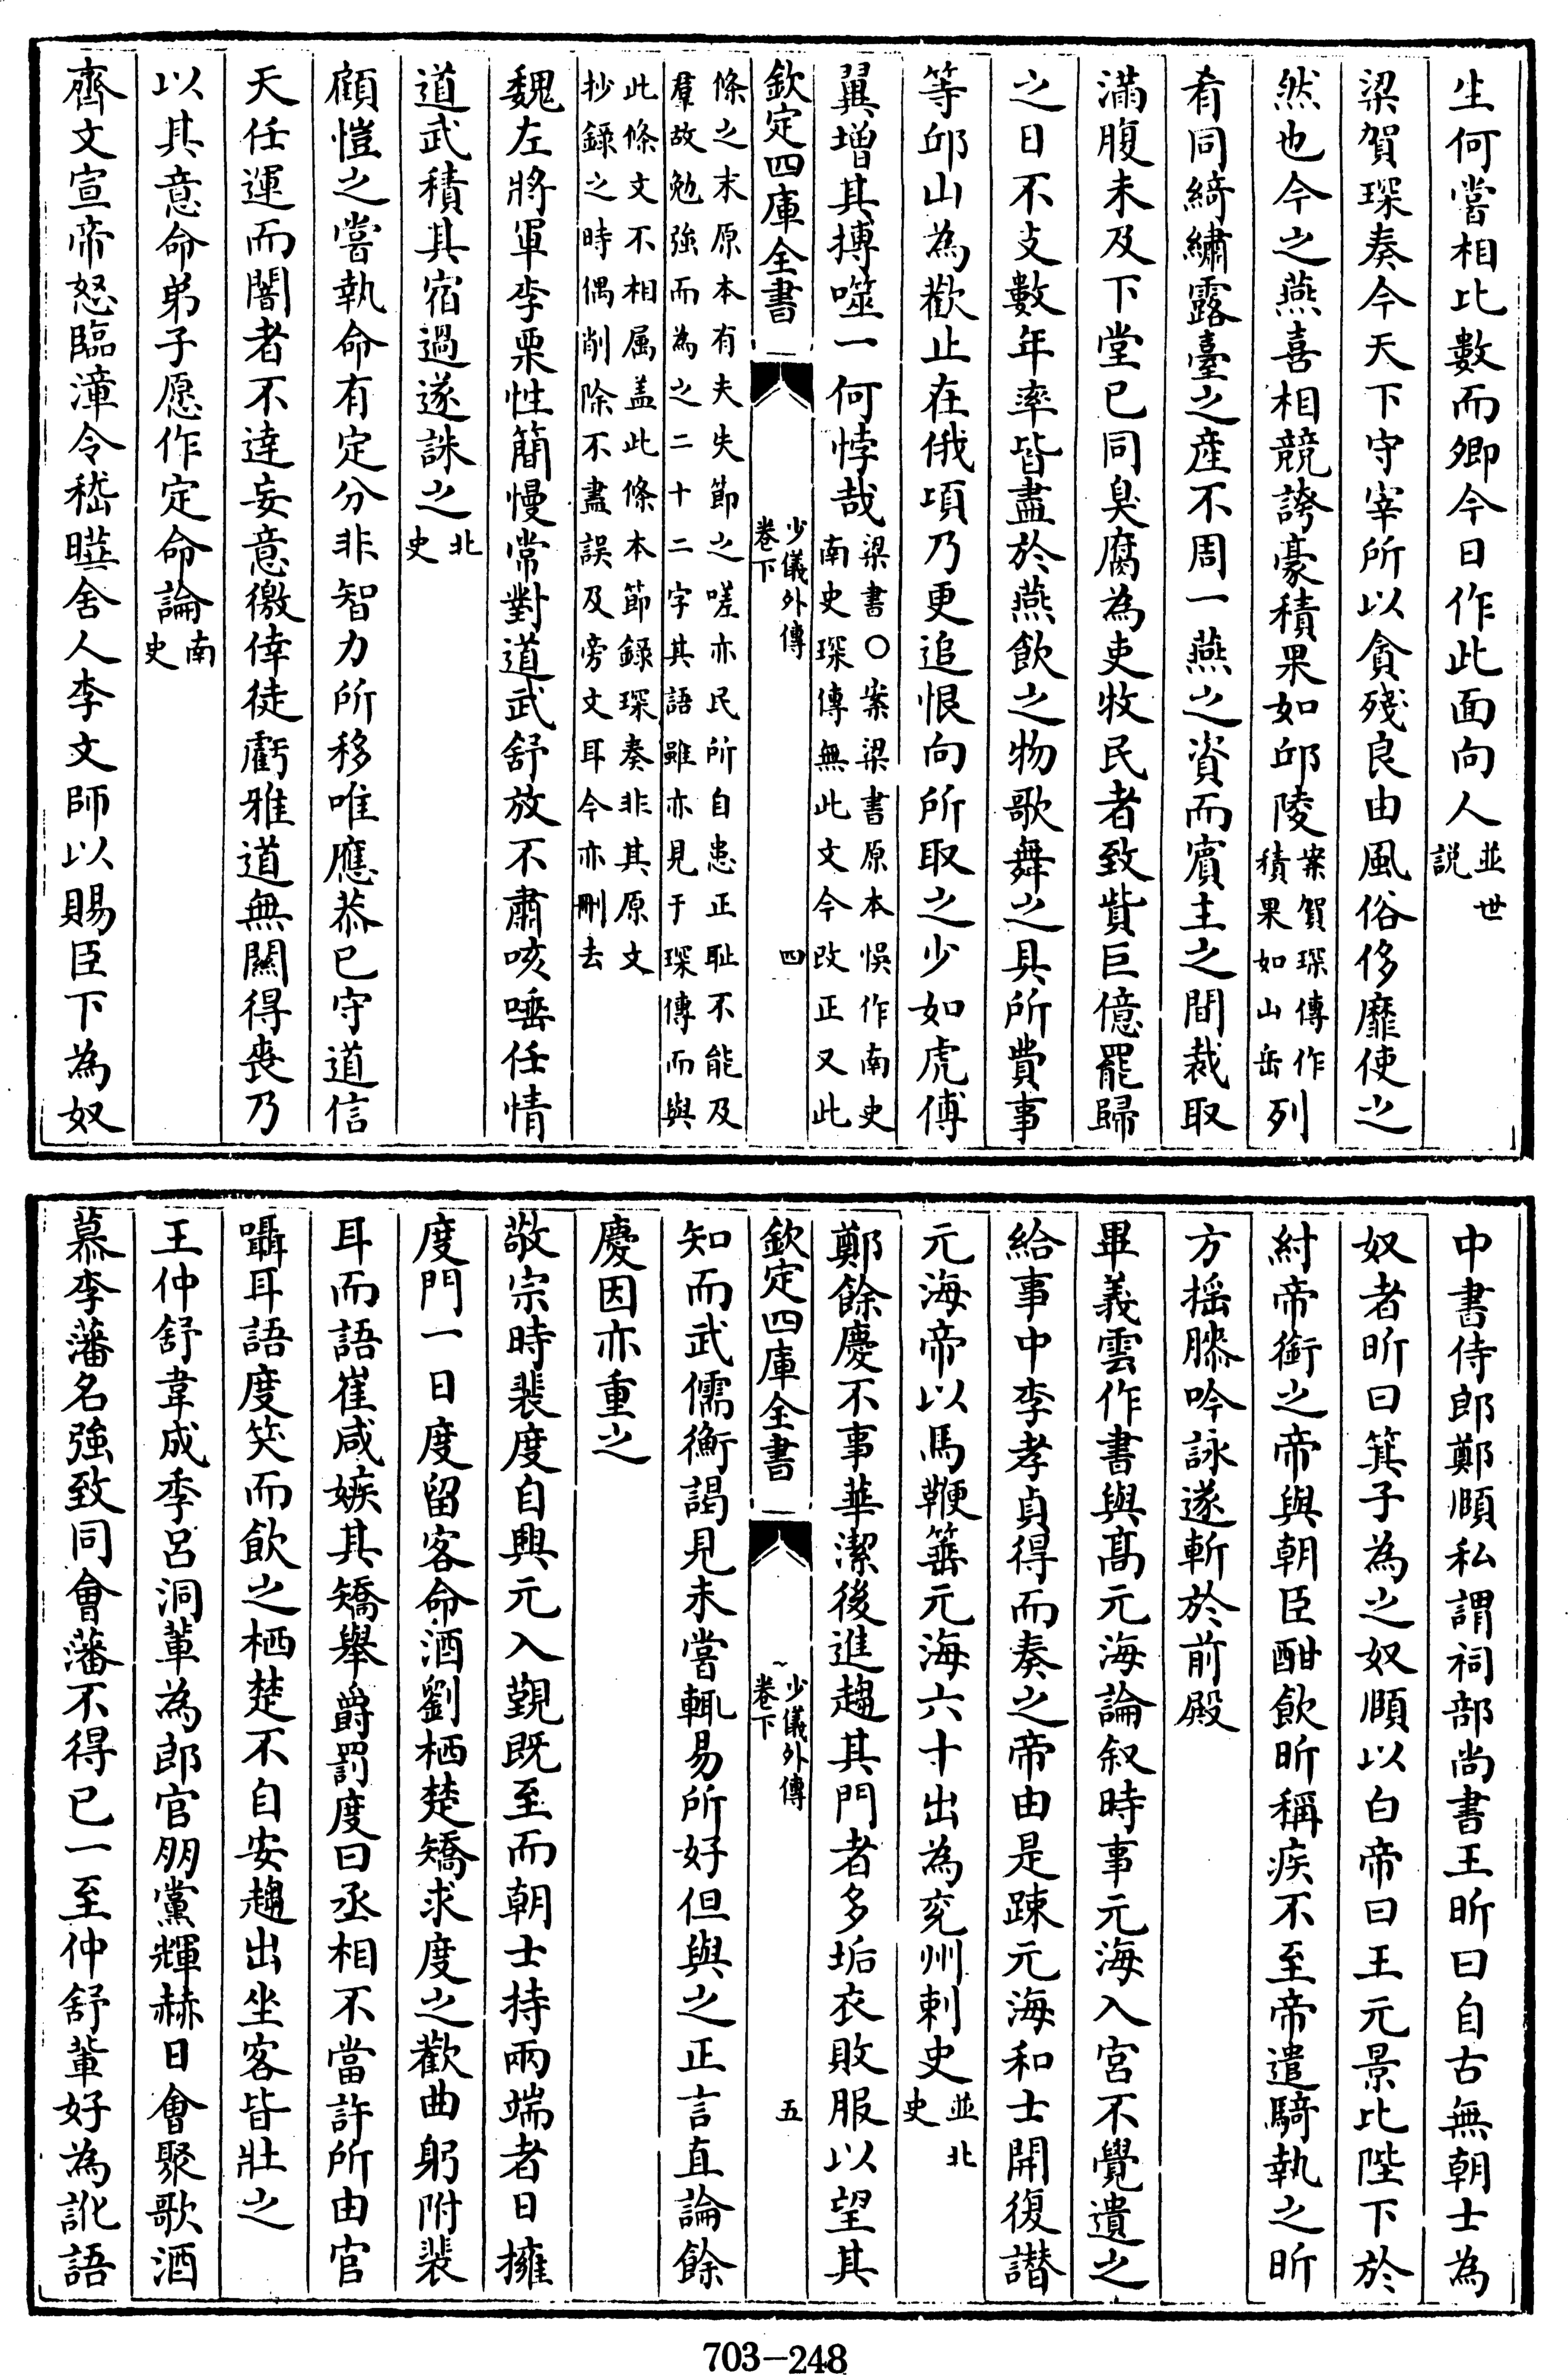 生何嘗相比數而卿今日作此面向人並世説
梁賀琛奏今天下守宰所以貪殘良由風俗侈靡使之
然也今之燕喜相競誇豪積果如邱陵案賀琛傳作積果如山岳列
肴同綺繡露臺之產不周一燕之資而賓主之間裁取
滿腹未及下堂已同臭腐為吏牧民者致貲巨億罷歸
之日不支數年率皆盡於燕飲之物歌舞之具所費事
等邱山為歡止在俄頃乃更追恨向所取之少如虎傅
翼增其搏噬一何悖哉梁書〇案梁書原本悞作南史南史琛傳無此文今改正又此
欽定四庫全書
少儀外傳
卷下
四
條之末原本有夫失節之嗟亦民所自患正耻不能及羣故勉強而為之二十二字其語雖亦見于琛傳而與
此條文不相属盖此條本節錄琛奏非其原文抄錄之時偶削除不盡誤及旁文耳今亦刪去
魏左將軍李栗性簡慢常對道武舒放不肅咳唾任情
道武積其宿過遂誅之北史
顧愷之嘗執命有定分非智力所移唯應恭已守道信
天任運而闇者不達妄意徼倖徒虧雅道無關得喪乃
以其意命弟子愿作定命論南史
齊文宣帝怒臨漳令嵇曄舍人李文師以賜臣下為奴
中書侍郎鄭順私謂祠部尚書王昕曰自古無朝士為
奴者昕曰箕子為之奴順以白帝曰王元景比陛下於
紂帝銜之帝與朝臣酣飲昕稱疾不至帝遣騎執之昕
方揺膝吟詠遂斬於前殿
畢義雲作書與髙元海論叙時事元海入宮不覺遺之
給事中李孝貞得而奏之帝由是踈元海和士開復譖
元海帝以馬鞭箠元海六十出為兖州刺史並北史
鄭餘慶不事華潔後進趨其門者多垢衣敗服以望其
欽定四庫全書
少儀外傳
卷下
五
知而武儒衡謁見未嘗輒易所好但與之正言直論餘
慶因亦重之
敬宗時裴度自興元入覲既至而朝士持兩端者日擁
度門一日度留客命酒劉栖楚矯求度之歡曲躬附裴
耳而語崔咸嫉其矯舉爵罰度曰丞相不當許所由官
囁耳語度笑而飲之栖楚不自安趨出坐客皆壯之
王仲舒韋成季呂洞輩為郎官朋黨輝赫日會聚歌酒
慕李藩名強致同會藩不得已一至仲舒輩好為訛語
703—248